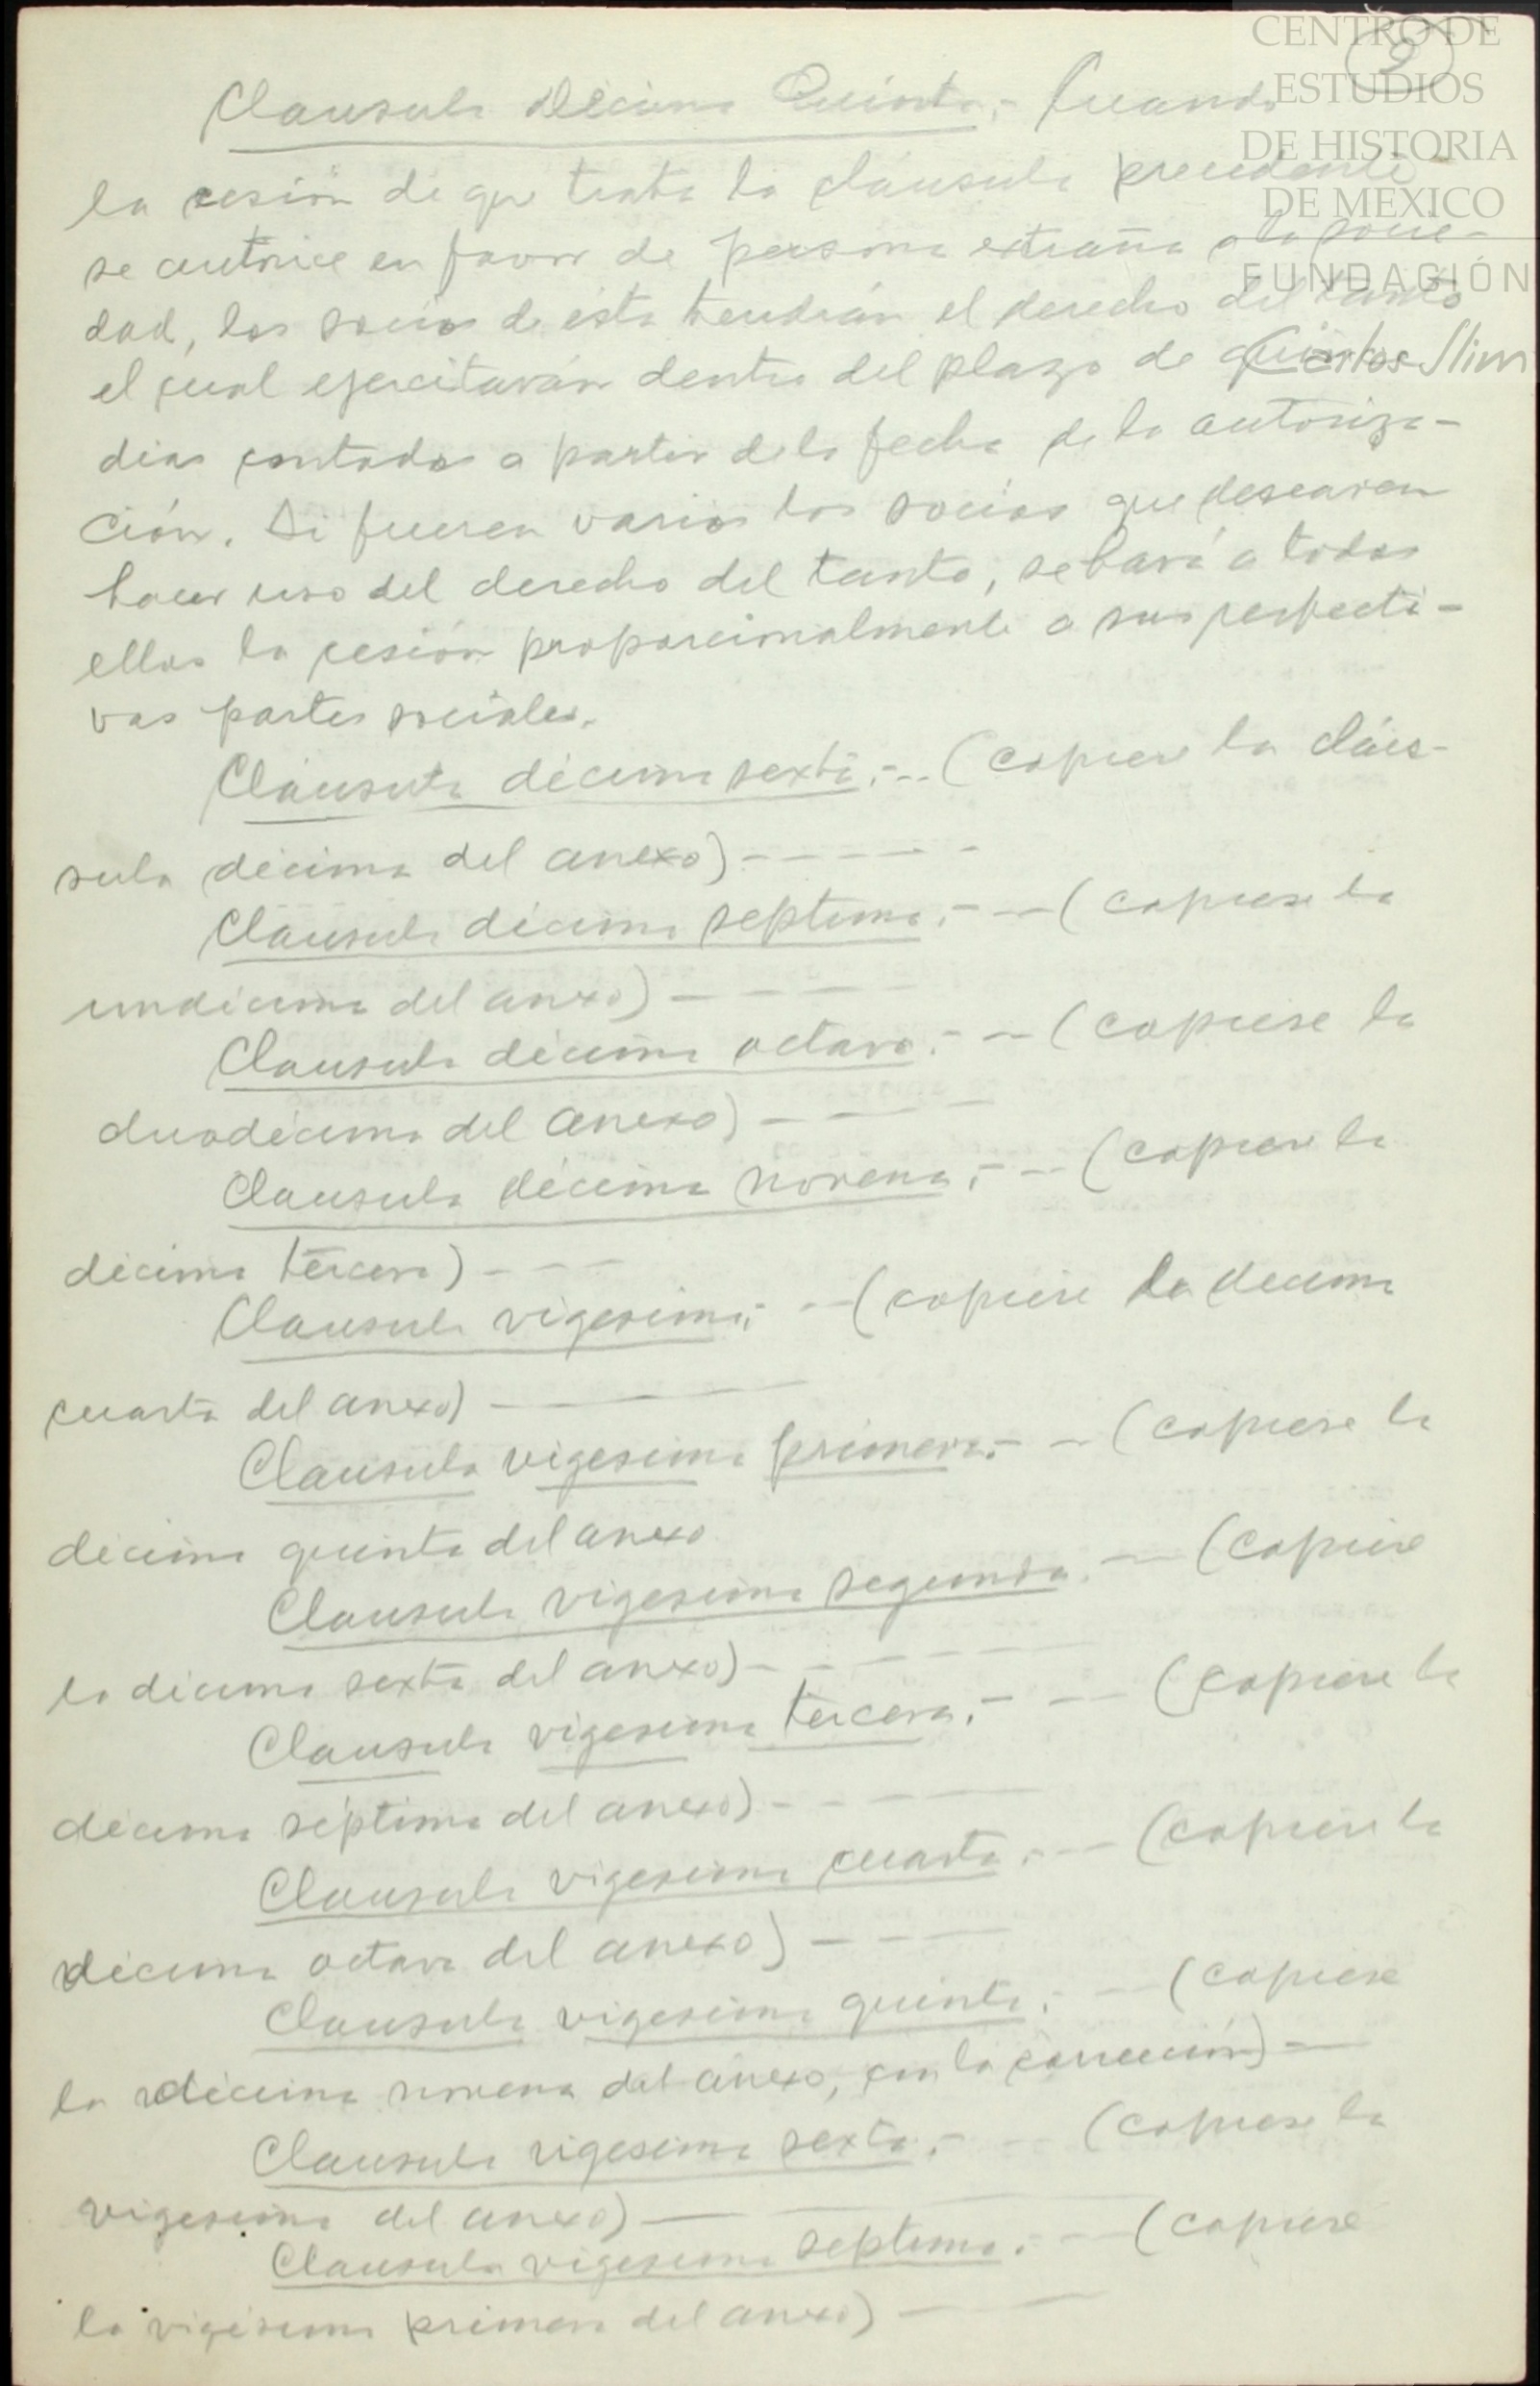 CENTRO DE
ESTUDIOS
DE HISTORIA
DE MEXICO
FUNDACIÓN
Carlos Slim
9
Clausula décima Quinta.- Cuando
la cesión de que trata la cláusula precedente
se autorice en favor de persona extraña a la socie-
dad, los socios de ésta tendrán el derecho del tanto
el cual ejercitarán dentro del plazo de quince
dias contados a partir de la fecha de la autoriza-
ción. Si fueren varios los socios que desearen
hacer uso del derecho del tanto, se hará a todos
ellos la cesión proporcionalmente a sus respecti-
vas partes sociales.
Cláusula décima sexta.-- (copiese la cláu-
sula décima del anexo) - - - - -
Cláusula décima septima.- - (copiese la
undécima del anexo) - - - -
Clausula décima octava.- - (copiese la
duodécima del anexo) - - -
Clausula décima novena.- - (copiese la
décima tercera) - - -
Clausula vigesima.- - (copiese la decima
cuarta del anexo) - - - -
Clausula vigesima primera.- - (copiese la
décima quinta del anexo
Clausula vigesima segunda.- - (copiese
la décima sexta del anexo) - - - - -
Clausula vigesima tercera.- - (copiese la
décima séptima del anexo) - - - -
Clausula vigesima cuarta.- - (copiese la
décima octava del anexo) - - -
Clausula vigesima quinta.- - (copiese
la décima novena del anexo, con la corrección) -
Clausula vigesima sexta.- - (copiese la
vigesima del anexo) - - -
Clausula vigesima septima.- - (copiese
la vigésima primera del anexo) - -